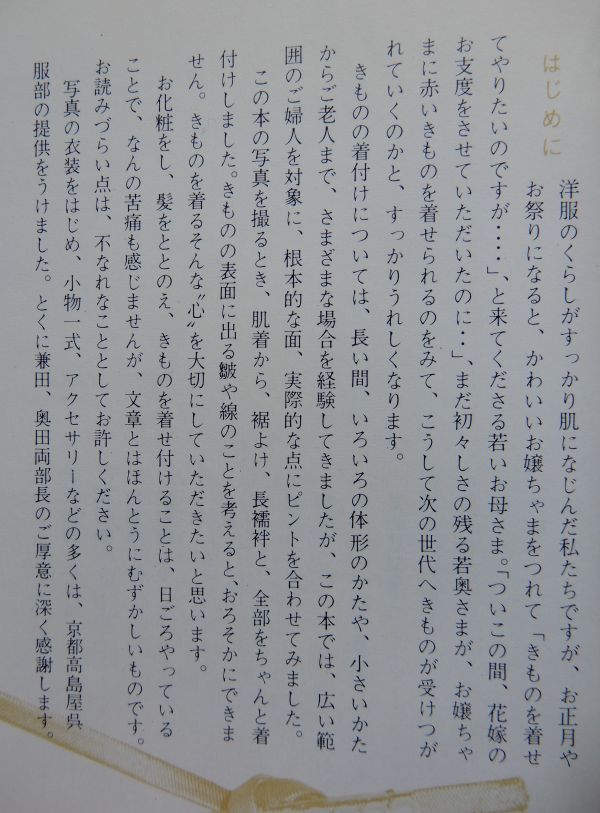 はじめに
洋服のくらしがすっかり肌になじんだ私たちですが、お正月や
お祭りになると、かわいいお嬢ちゃまをつれて「きものを着せ
てやりたいのですが‥‥」、と来てくださる若いお母さま。「ついこの間、花嫁の
お支度をさせていただいたのに‥」、まだ初々しさの残る若奥さまが、お嬢ちゃ
まに赤いきものを着せられるのをみて、こうして次の世代へきものが受けつが
れていくのかと、すっかりうれしくなります。
きものの着付けについては、長い間、いろいろの体形のかたや、小さいかた
からご老人まで、さまざまな場合を経験してきましたが、この本では、広い範
囲のご婦人を対象に、根本的な面、実際的な点にピントを合わせてみました。
この本の写真を撮るとき、肌着から、裾よけ、長襦袢と、全部をちゃんと着
付けしました。きものの表面に出る皺や線のことを考えると、おろそかにできま
せん。きものを着るそんな〝心〟を大切にしていただきたいと思います。
お化粧をし、髪をととのえ、きものを着せ付けることは、日ごろやっている
ことで、なんの苦痛も感じませんが、文章とはほんとうにむずかしいものです。
お読みづらい点は、不なれなこととしてお許しください。
写真の衣装をはじめ、小物一式、アクセサリーなどの多くは、京都高島屋呉
服部の提供をうけました。とくに兼田、奥田両部長のご厚意に深く感謝します。